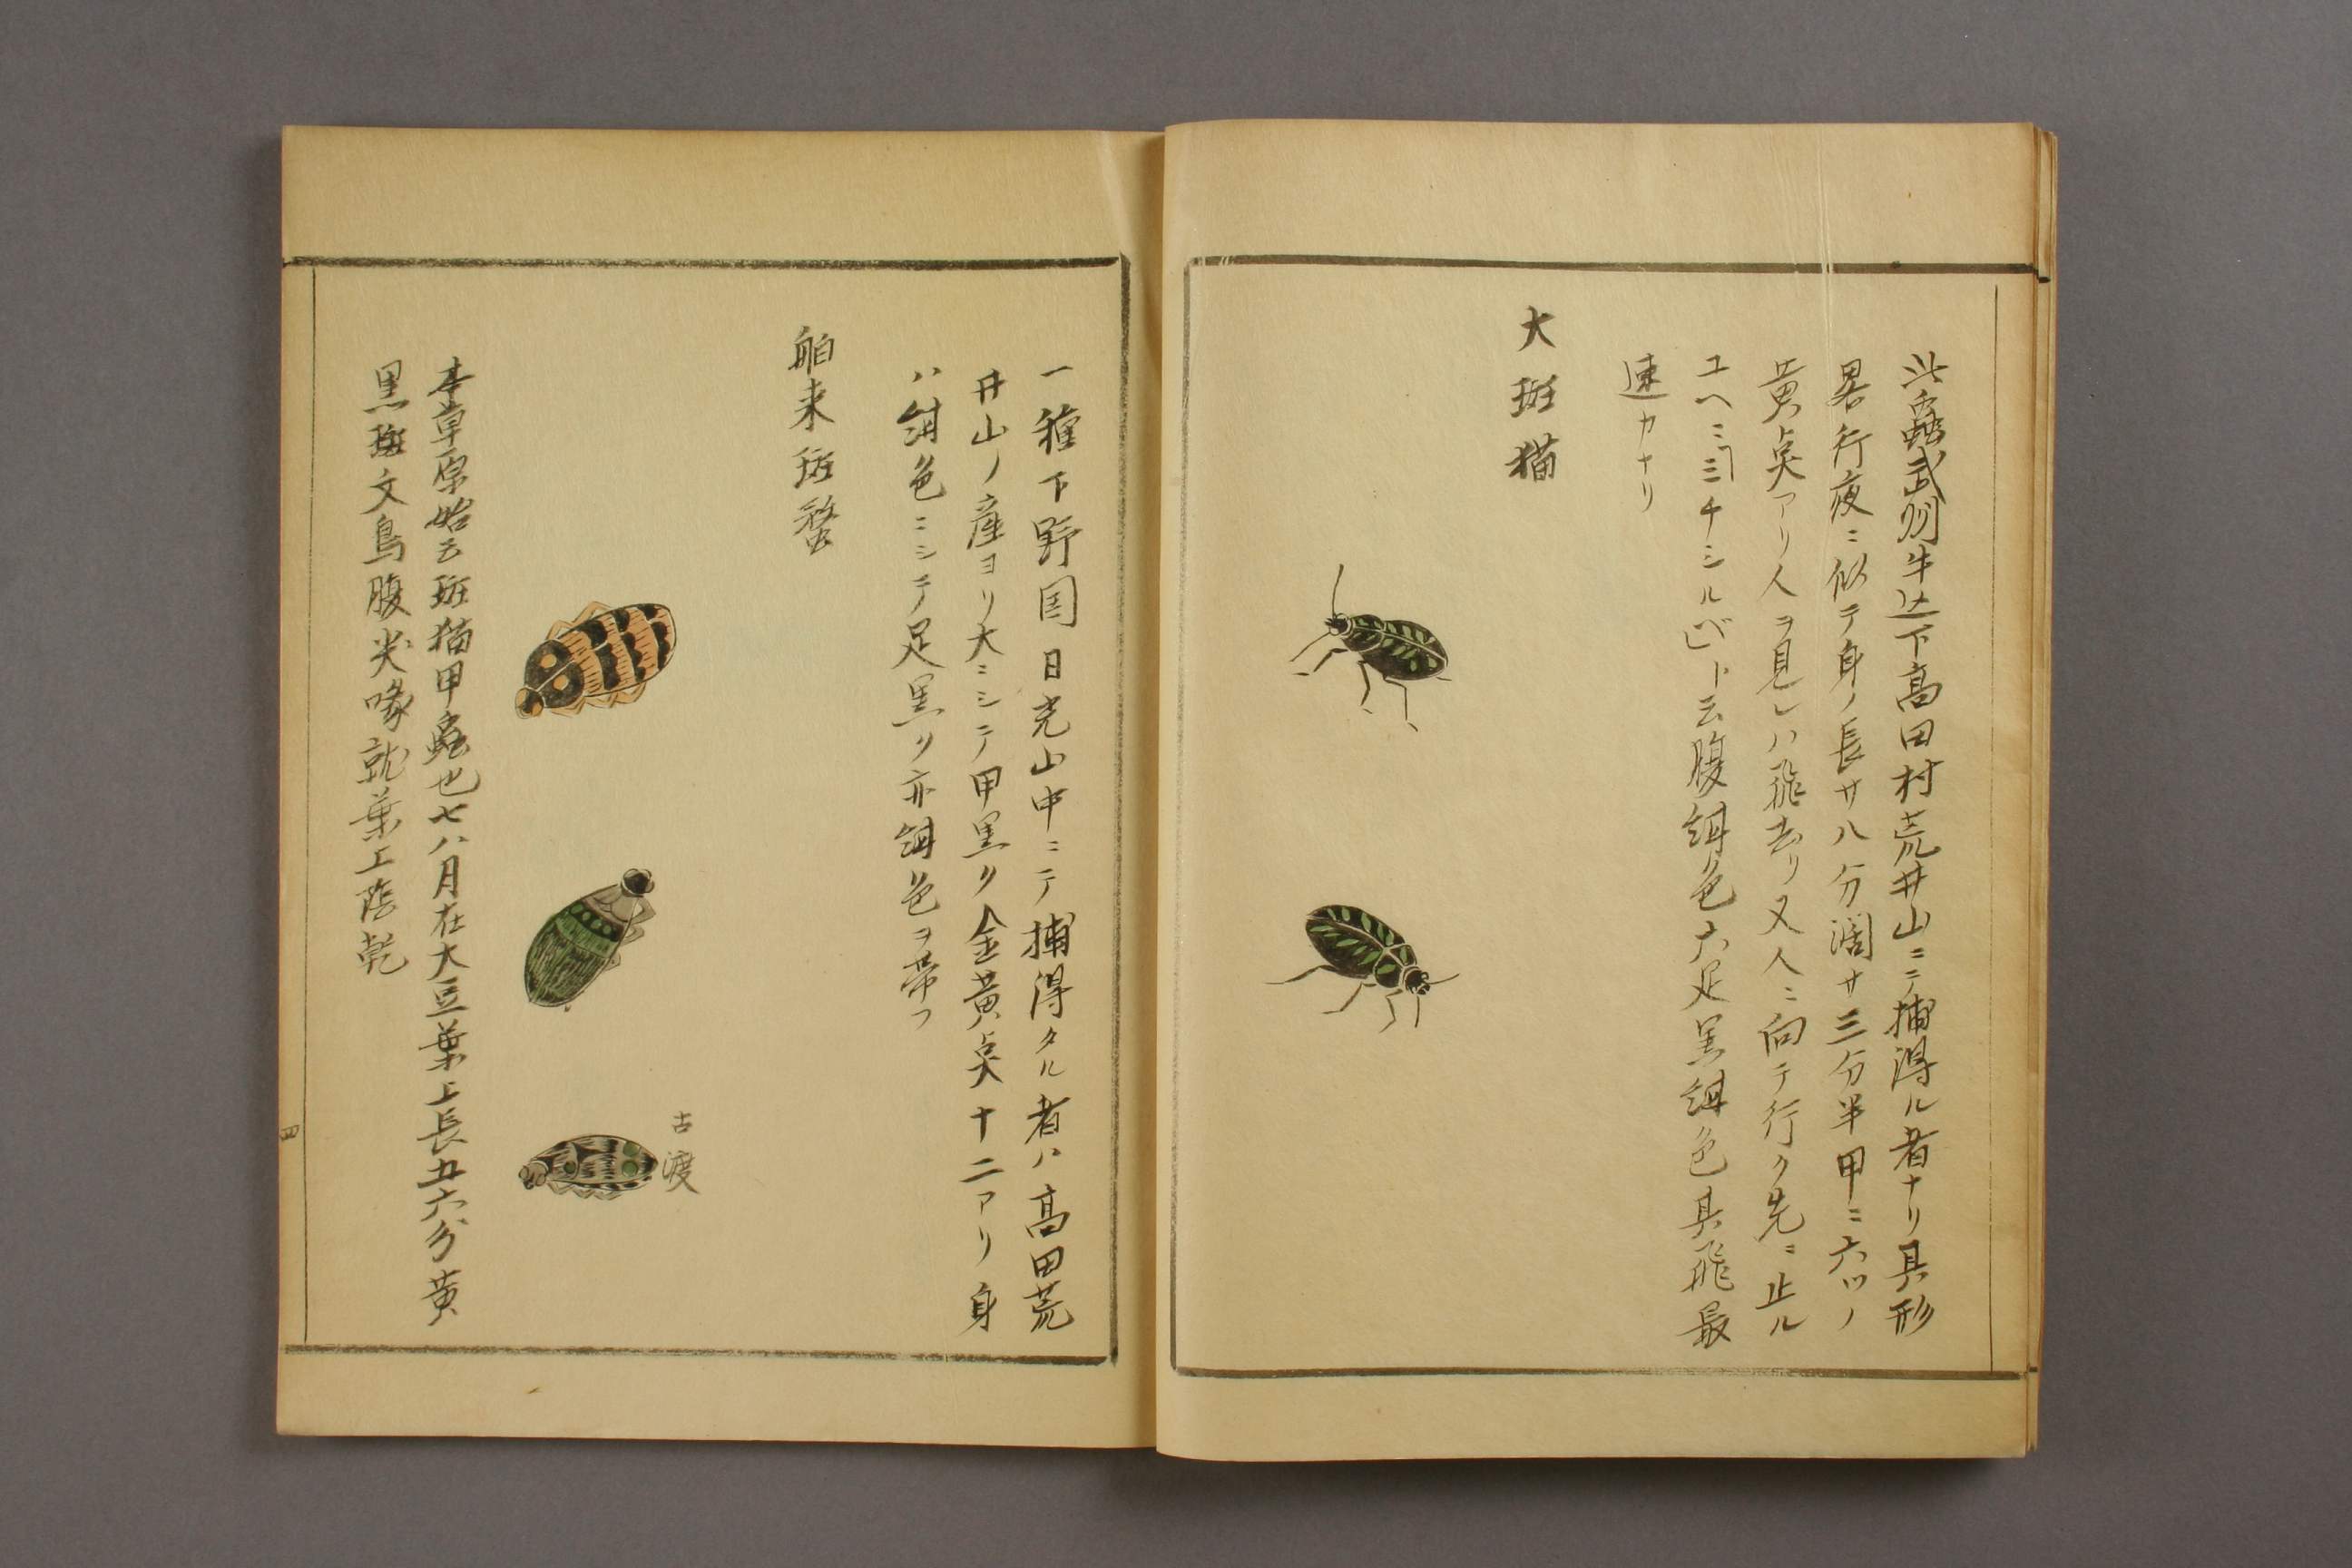 此蟲武州牛込下高田村荒井山ニテ捕得ル者ナリ其形
畧行夜ニ似テ身ノ長サ八分濶サ三分半甲ニ六ツノ
黄点アリ人ヲ見レハ飛去リ又人ニ向テ行ク先ニ止ル
ユヘニミチシルベト云腹紺色六足黒紺色其飛最
速カナリ
大斑猫
一種下野国日光山中ニテ捕得タル者ハ高田荒
井山ノ産ヨリ大ニシテ甲黒ク金黄点十二アリ身
ハ紺色ニシテ足黒ク亦紺色ヲ帯フ
舶来斑蝥
古渡
本草原始云斑猫甲蟲也七八月在大豆葉上長五六分黄
黒斑文烏腹尖喙就葉上陰乾
四